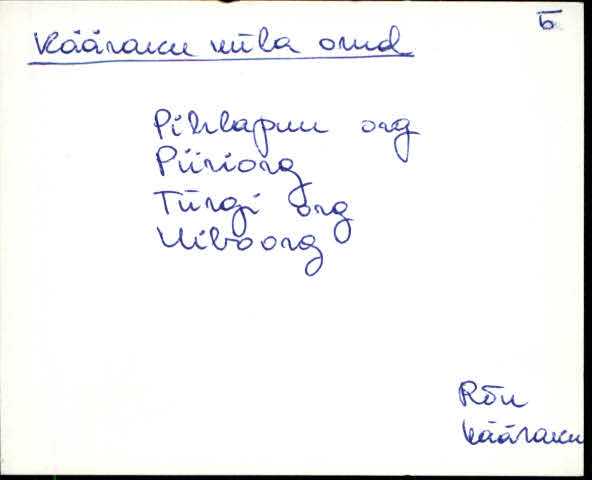 Б
Kääraku küla orud
Pihlapuu org
Piiriorg
Türgi org
Uiboorg
Rõu
Kääraku